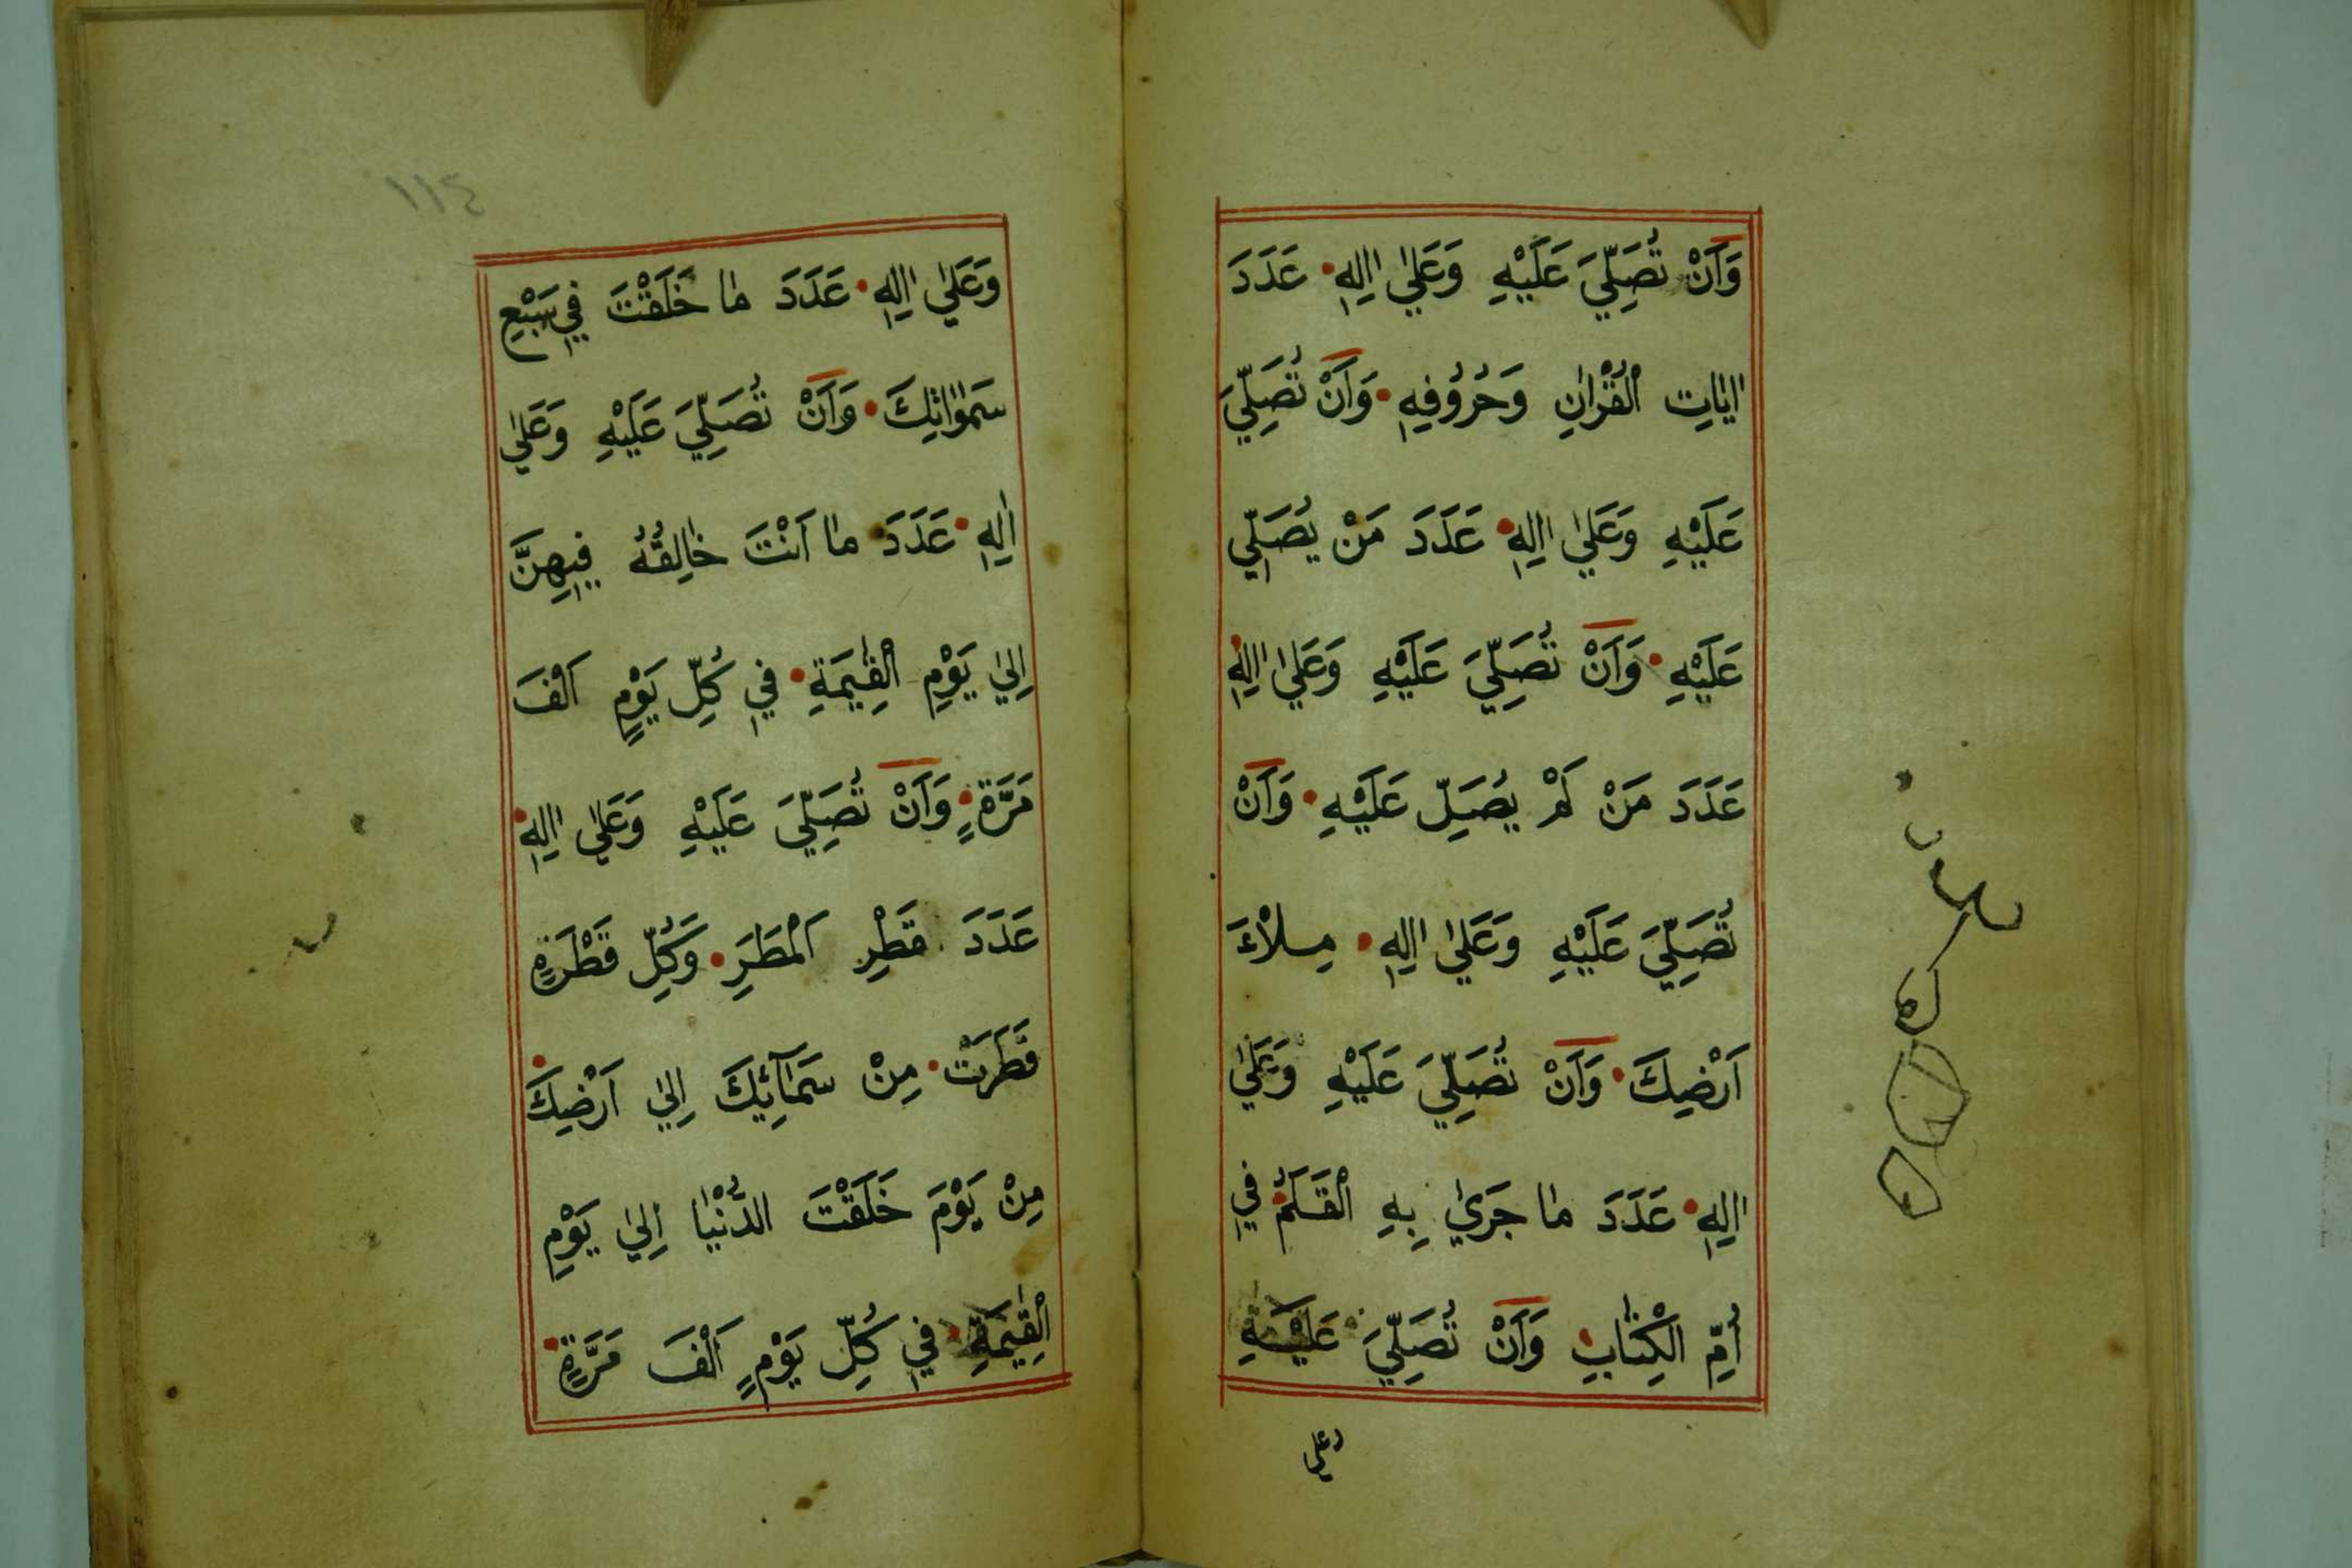 وَاَنْ تُصَلِّيَ عَلَيْهِ وَعَلٰي اٰلِهِ عَدَدَ
اٰيٰاتِ الْقُرْاٰنِ وَحُرُوُفِهِ وَاَنْ تُصَلِّيَ
عَلَيْهِ وَعَلٰي اٰلِهِ عَدَدَ مَنْ يُصَلِّي
عَلَيْهِ وَاَنْ تُصَلِّيَ عَلَيْهِ وَعَلٰي اٰلِهِ
عَدَدَ مَنْ لَمْ يُصَلِّ عَلَيْهِ وَاَنْ
تُصَلِّيَ عَلَيْهِ وَعَلٰي اٰلِهِ مِلْاَءَ
اَرْضِكَ وَاَنْ تُصَلِّيَ عَلَيْهِ وَعَلٰي
اٰلِهِ عَدَدَ مٰا جَرٰي بِهِ الْقَلَمُ فِي
اُمِّ الْكِتٰابِ وَاَنْ تُصَلِّيَ عَلَيْهِ
وعلي
١١٤
وَعَلٰي اٰلِهِ عَدَدَ مٰا خَلَقْتَ فِي سَبْعِ
سَمٰوٰاتِكَ وَاَنْ تُصَلِّيَ عَلَيْهِ وَعَلٰي
اٰلِهِ عَدَدَ مٰا اَنْتَ خٰالِقُهُ فِيهِنَّ
اِلٰي يَوْمِ الْقِيٰمَةِ فِي كُلِّ يَوْمٍ اَلْفَ
مَرَّةٍ وَاَنْ تُصَلِّيَ عَلَيْهِ وَعَلٰي اٰلِهِ
عَدَدَ قَطْرِ الْمَطَرِ وَكُلِّ قَطْرَةٍ
قَطَرَتْ مِنْ سَمٰآئِكَ اِلٰي اَرْضِكَ
مِنْ يَوْمَ خَلَقْتَ الدُّنْيٰا اِلٰي يَوْمِ
الْقِيٰمَةِ فِي كُلِّ يَوْمٍ اَلْفَ مَرَّةٍ